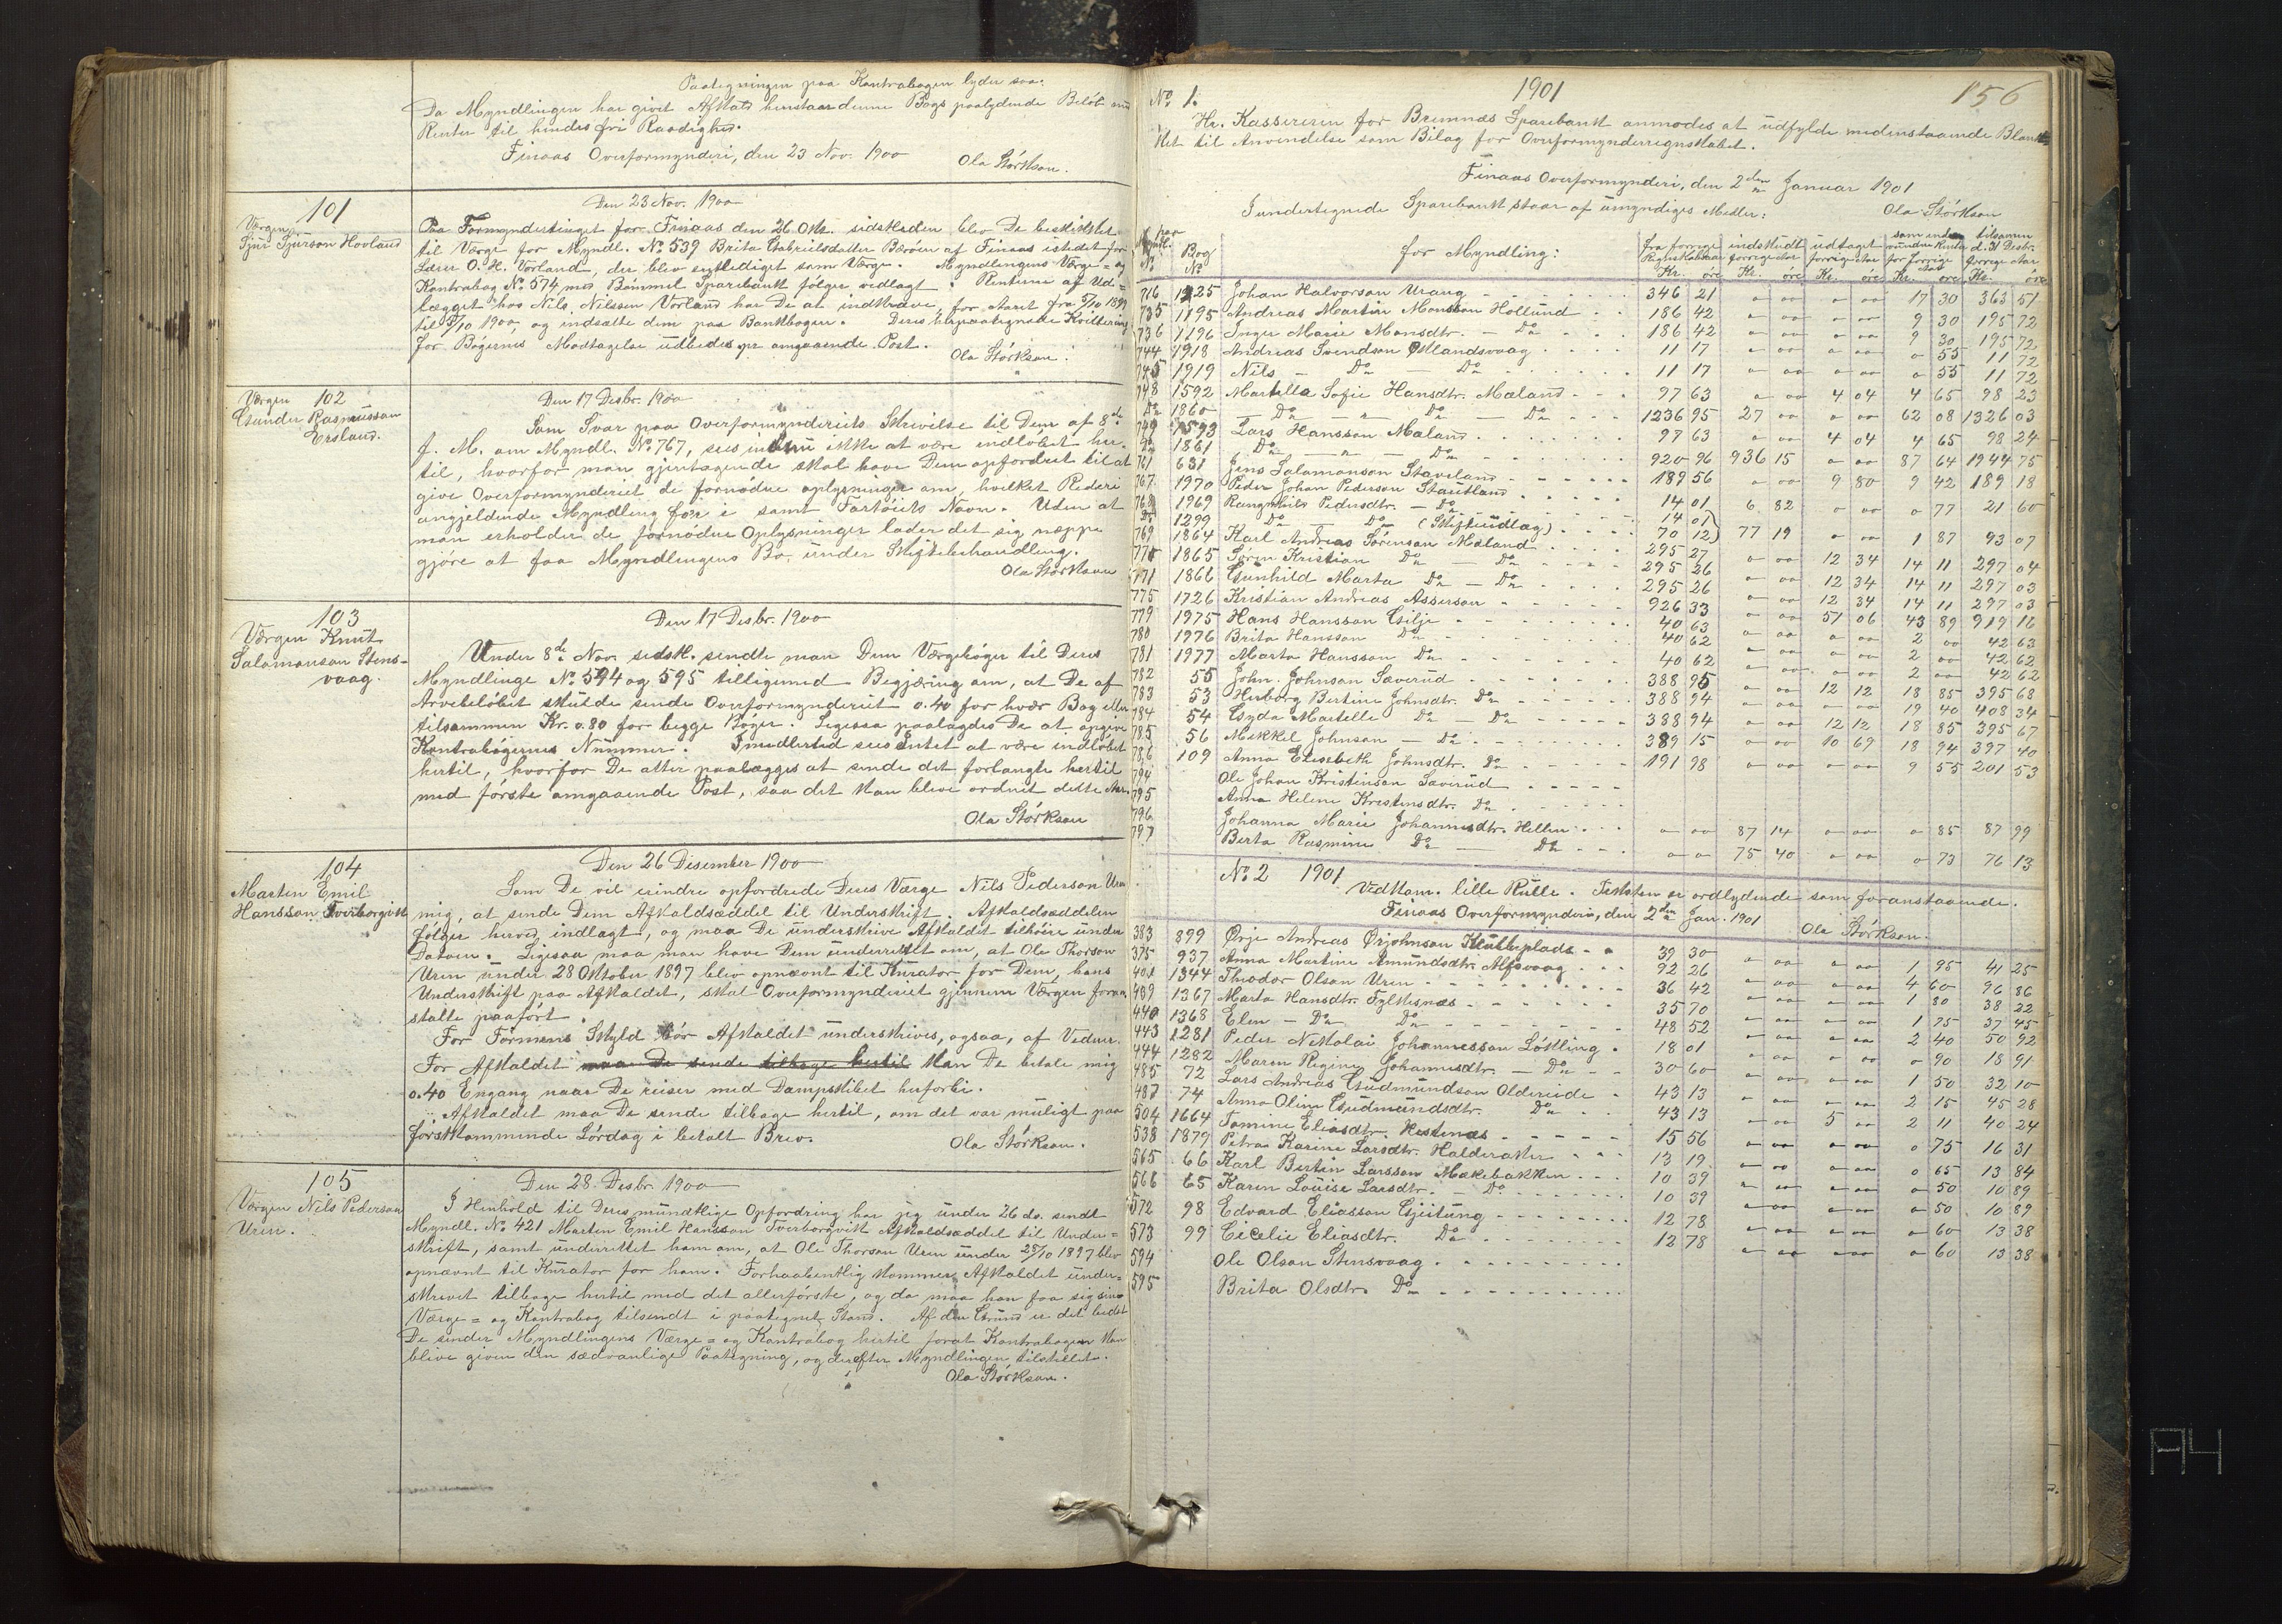 Paategningen paa Kontrabogen lyder saa:
Da Myndlingen har givet Afkald henstaar denne Bogs paalydende Beløb med
Renter til hendes fri Raadighed.
Finaas Overformynderi, den 23 Nov. 1900
Ola Størkson.
101
Værgen
Sjur Sjurson Hovland
Den 23 Nov. 1900
Paa Formyndertinget for Finaas den 26 Okt. sidstleden blev De beskikket
til Værge for Myndl. No 539 Brita Gabrielsdatter Bærøen af Finaas istedetfor
Lærer O. H. Vorland, der blev entlediget som Værge. Myndlingens Værge= og
Kontrabog No 574 med Bømmel Sparebank følger vedlagt. Renterne af Ud=
lægget hos Nils Nilssen Vorland har De at indkræve, for Aaret fra 5/10 1899
til 5/10 1900, og indsætte dem paa Bankbogen. Deres herpaategnede Kvittering
for Bøgernes Modtagelse udbedes pr omgaaende Post.
Ola Størkson.
Værgen 102
Gunder Rasmusson
Ersland.
Den 17 Desbr. 1900
Som Svar paa Overformynderiets Skrivelse til Dem af 8de
f. M. om Myndl. No 767, sees intet ikke at være indløbet her=
til, hvorfor man gjentagende skal have Dem opfordret til at
give Overformynderiet de fornødne oplysninger om, hvilket Rederi
angjeldende Myndling foer i samt Fartøiets Navn. Uden at
man erholder de fornødne Oplysninger lader det sig neppe
gjøre at faa Myndlingens Bo under Skiftebehandling.
Ola Størkson
103
Værgen Knut
Salamonson Stens-
vaag.
Den 17 Desbr. 1900
Under 8de Nov. sidstl. sendte man Dem Værgebøger til Deres
Myndlinge No 594 og 595 tilligemed Begjæring om, at De af
Arvebeløbet skulde sende Overformynderiet 0.40 for hver Bog eller
tilsammen Kr. 0.80 for begge Bøger. Ligesaa paalagdes De at opgive
Kontrabøgernes Nummer. Imidlertid sees Intet at være indløbet
hertil, hvorfor De atter paalægges at sende det forlangte hertil
med første omgaaende Post, saa det kan blive ordnet dette Aar.
Ola Størkson
104
Marten Emil
Hansson Tverborgvik
Den 26 Desember 1900
Som De vil erindre opfordrede Deres Værge Nils Pederson Uren
mig, at sende Dem Afkaldsæddel til Underskrift. Afkaldsæddelen
følger herved indlagt, og maa De underskrive Afkaldet tilhøire under
Datoen. Ligesaa maa man have Dem underrettet om, at Ole Thorson
Uren under 28 Oktober 1897 blev opnævnt til Kurator for Dem, hans
Underskrift paa Afkaldet, skal Overformynderiet gjennem Værgen foran=
stalte paaført.
For Formens Skyld bør Afkaldet underskrives, ogsaa, af Vedum.
For Afkaldet maa De sende tilbage hertil kan De betale mig
0.40 Engang naar De reiser med Dampskibet herforbi.
Afkaldet maa De sende tilbage hertil, om det var muligt paa
førstkommende Lørdag i betalt Brev.
Ola Størkson.
105
Værgen Nils Pederson
Uren.
Den 28 Desbr. 1900
I Henhold til Deres mundtlige Opfordring har jeg under 26 ds. sendt
Myndl. No 421 Marten Emil Hansson Tverborgvik Afkaldsæddel til Under=
skrift, samt underrettet ham om, at Ole Thorson Uren under 28/10 1897 blev
opnævnt til Kurator for ham. Forhaabentlig kommer Afkaldet under=
skrevet tilbage hertil med det allerførste, og da maa han faa sig sine
Værge= og Kontrabog tilsendt i paategnet Stand. Af den Grund er det bedst
De sender Myndlingens Værge= og Kontrabog hertil forat Kontrabogen kan
blive given den sædvanlige Paategning, og derefter Myndlingen tilstillet.
Ola Størkson.
No 1. 1901 156
Hr. Kassereren for Bremnæs Sparebank anmodes at udfylde nedenstaaende Blan=
ket til Anvendelse som Bilag for Overformynderregnskabet.
Finaas Overformynderi, den 2den Januar 1901
Ola Størkson
I undertegnede Sparebank staar af umyndiges Midler:
Myndl. No Bog No for Myndling: fra forrige Regnskabsaar indskudt forrige Aar udtaget forrige Aar som inde vundne Renter for forrige Aar tilsammen d. 31 Desbr. forrige Aar
Kr. øre Kr. øre Kr. øre Kr. øre Kr. øre
716 1325 Johan Halvorson Urang 346 21 " " " " 17 30 363 51
735 1195 Andreas Martin Monsson Hollund 186 42 " " " " 9 30 195 72
736 1196 Inger Marie Monsdtr. — Do 186 42 " " " " 9 30 195 72
744 1918 Andreas Svendson Østlandsvaag 11 17 " " " " " 55 11 72
745 1919 Nils — Do — Do 11 17 " " " " " 55 11 72
748 1592 Martella Sofie Hansdtr. Mæland 97 63 " " 4 04 4 65 98 23
Do 1860 — Do — " — Do — Do 1236 95 27 " " " 62 08 1326 03
749 1593 Lars Hansson Mæland 97 63 " " 4 04 4 65 98 24
Do 1861 Do — " — Do 920 96 936 15 " " 87 64 1944 75
761 631 Jens Salamonson Staveland 189 56 " " 9 80 9 42 189 18
767 1970 Peder Johan Pederson Stautland 14 01 6 82 " " " 77 21 60
768 1969 Rangnhild Pedersdtr. — Do 14 01
Do 1299 Do — Do (Skifteudlæg) 70 12 77 19 " " 1 87 93 07
769 1864 Karl Andreas Sørenson Mæland 295 27 " " 12 34 14 11 297 04
770 1865 Søren Kristian Do — Do 295 26 " " 12 34 14 11 297 03
771 1866 Gunhild Marta Do — Do 295 26 " " 12 34 14 11 297 03
775 1726 Kristian Andreas Asserson 926 33 " " 51 06 43 89 919 16
779 1975 Hans Hansson Gilje 40 63 " " " " 2 00 42 63
780 1976 Brita Hansson Do 40 62 " " " " 2 00 42 62
781 1977 Marta Hansson Do 40 62 " " " " 2 00 42 62
782 55 John Johnson Sæverud 388 95 " " 12 12 18 85 395 68
783 53 Herborg Bertine Johnsdtr. Do 388 94 " " " " 19 40 408 34
784 54 Gyda Martelle Do — Do 388 94 " " 12 12 18 85 395 67
785 56 Mekkel Johnson — Do 389 15 " " 10 69 18 94 397 40
786 109 Anna Elisebeth Johnsdtr. Do 191 98 " " " " 9 55 201 53
794 Ole Johan Kristenson Sæverud
795 Anna Helene Kristensdtr. Do
796 Johanna Marie Johannesdtr. Hellen " " 87 14 " " " 85 87 99
797 Berta Rasmine Do — Do " " 75 40 " " " 73 76 13
No 2 1901
Vedkom. lille Rulle. Teksten er ordlydende som foranstaaende.
Finaas Overformynderi, den 2den Jan. 1901
Ola Størkson.
383 899 Ørje Andreas Ørjohnson Klubbeplads 39 30 " " " " 1 95 41 25
395 937 Anna Martine Amundsdtr. Alfsvaag 92 26 " " " " 4 60 96 86
401 1344 Theodor Olson Uren 36 42 " " " " 1 80 38 22
439 1367 Marta Hansdtr. Fylkesnæs 35 70 " " " " 1 75 37 45
440 1368 Elen — Do Do 48 52 " " " " 2 40 50 92
443 1281 Peder Nekolai Johannesson Løkling 18 01 " " " " " 90 18 91
444 1282 Maren Regine Johannesdtr. — Do 30 60 " " " " 1 50 32 10
485 72 Lars Andreas Gudmundson Oldereide 43 13 " " " " 2 15 45 28
487 74 Anna Oline Gudmundsdtr. Do 43 13 " " 5 " 2 11 40 24
504 1664 Tomine Eliasdtr. Hestenæs 15 56 " " " " " 75 16 31
538 1879 Petra Karine Larsdtr. Halderaker 13 19 " " " " " 65 13 84
565 66 Karl Bertin Larsson Mækebakken 10 39 " " " " " 50 10 89
566 65 Karen Louise Larsdtr. — Do 10 39 " " " " " 50 10 89
572 98 Edvard Eliasson Gjeitung 12 78 " " " " " 60 13 38
573 99 Cicelie Eliasdtr. Do 12 78 " " " " " 60 13 38
594 Ole Olson Stensvaag
595 Brita Olsdtr. Do